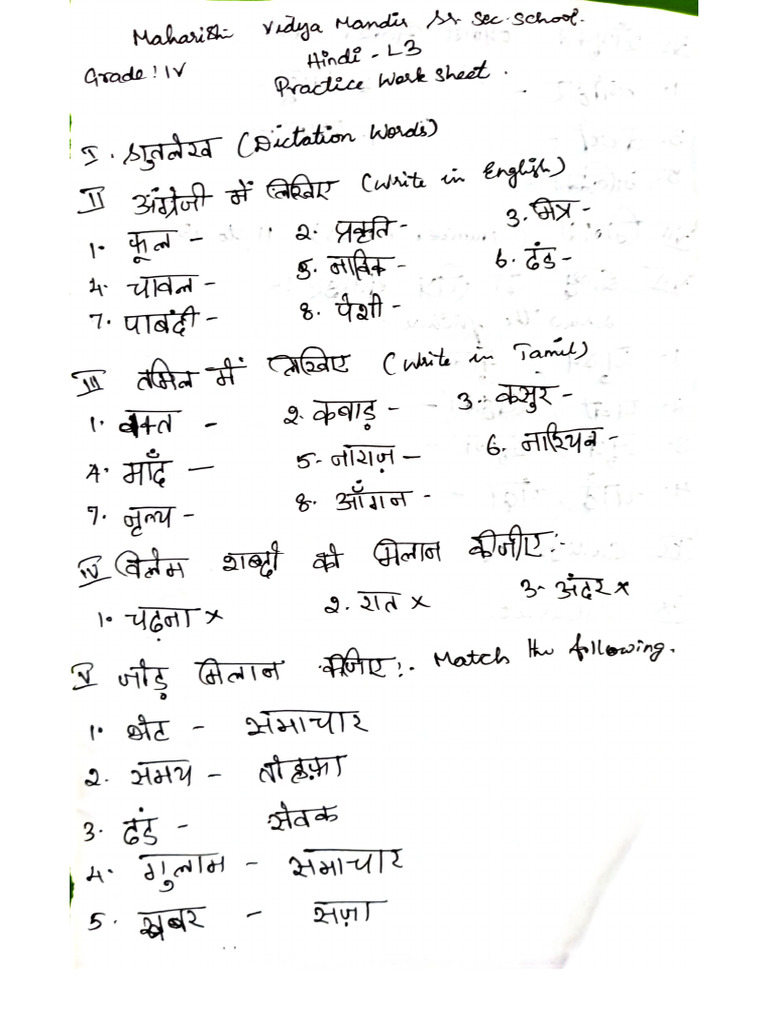 Maharishi Vidya Mandir Sr Sec. School.
Hindi - L3
Grade: IV
Practice Work Sheet.
I. श्रुतलेख (Dictation Words)
II अंग्रेजी में लिखिए (Write in English)
1. फूल - 2. प्रकृति - 3. मित्र -
4. चावल - 5. नाविक - 6. दंड -
7. पाबंदी - 8. पेशी -
III तमिल में लिखिए (Write in Tamil)
1. वक्त - 2. कबाड़ - 3. कसुर -
4. माँद - 5. नाराज़ - 6. नारियल -
7. नृत्य - 8. आँगन -
IV विलोम शब्दों को मिलान कीजीए:-
1. चढ़ना x 2. रात x 3. अंदर x
V जोड़ मिलान कीजिए:- Match the following.
1. भेट - समाचार
2. समय - तोहफ़ा
3. दंड - सेवक
4. गुलाम - समाचार
5. ख़बर - सज़ा